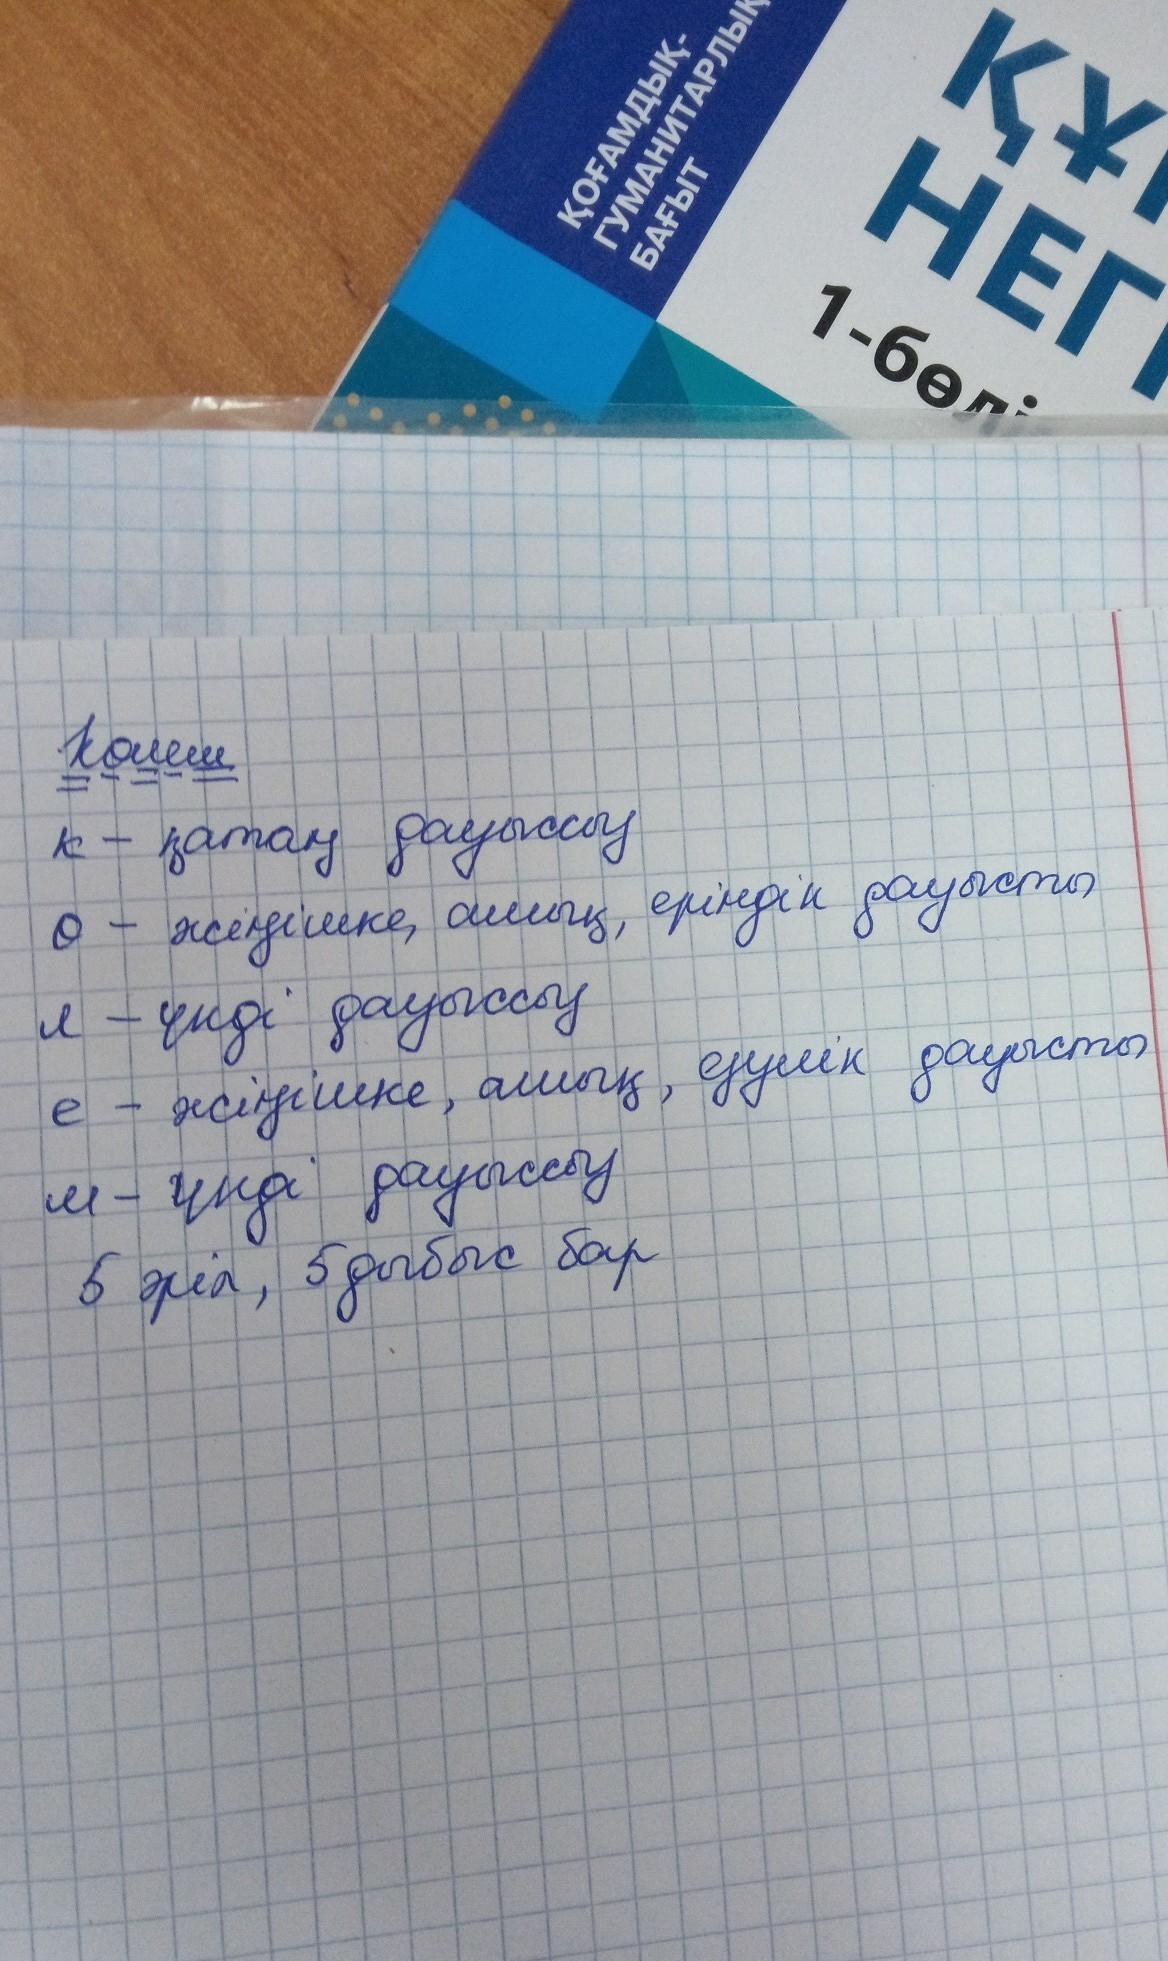 ҚОҒАМДЫҚ-
ГУМАНИТАРЛЫҚ
БАҒЫТ
1-бөлі
Көлем
к – қатаң дауыссыз
ө – жіңішке, ашық, еріндік дауысты
л – үнді дауыссыз
е – жіңішке, ашық, езулік дауысты
м – үнді дауыссыз
5 әріп, 5 дыбыс бар